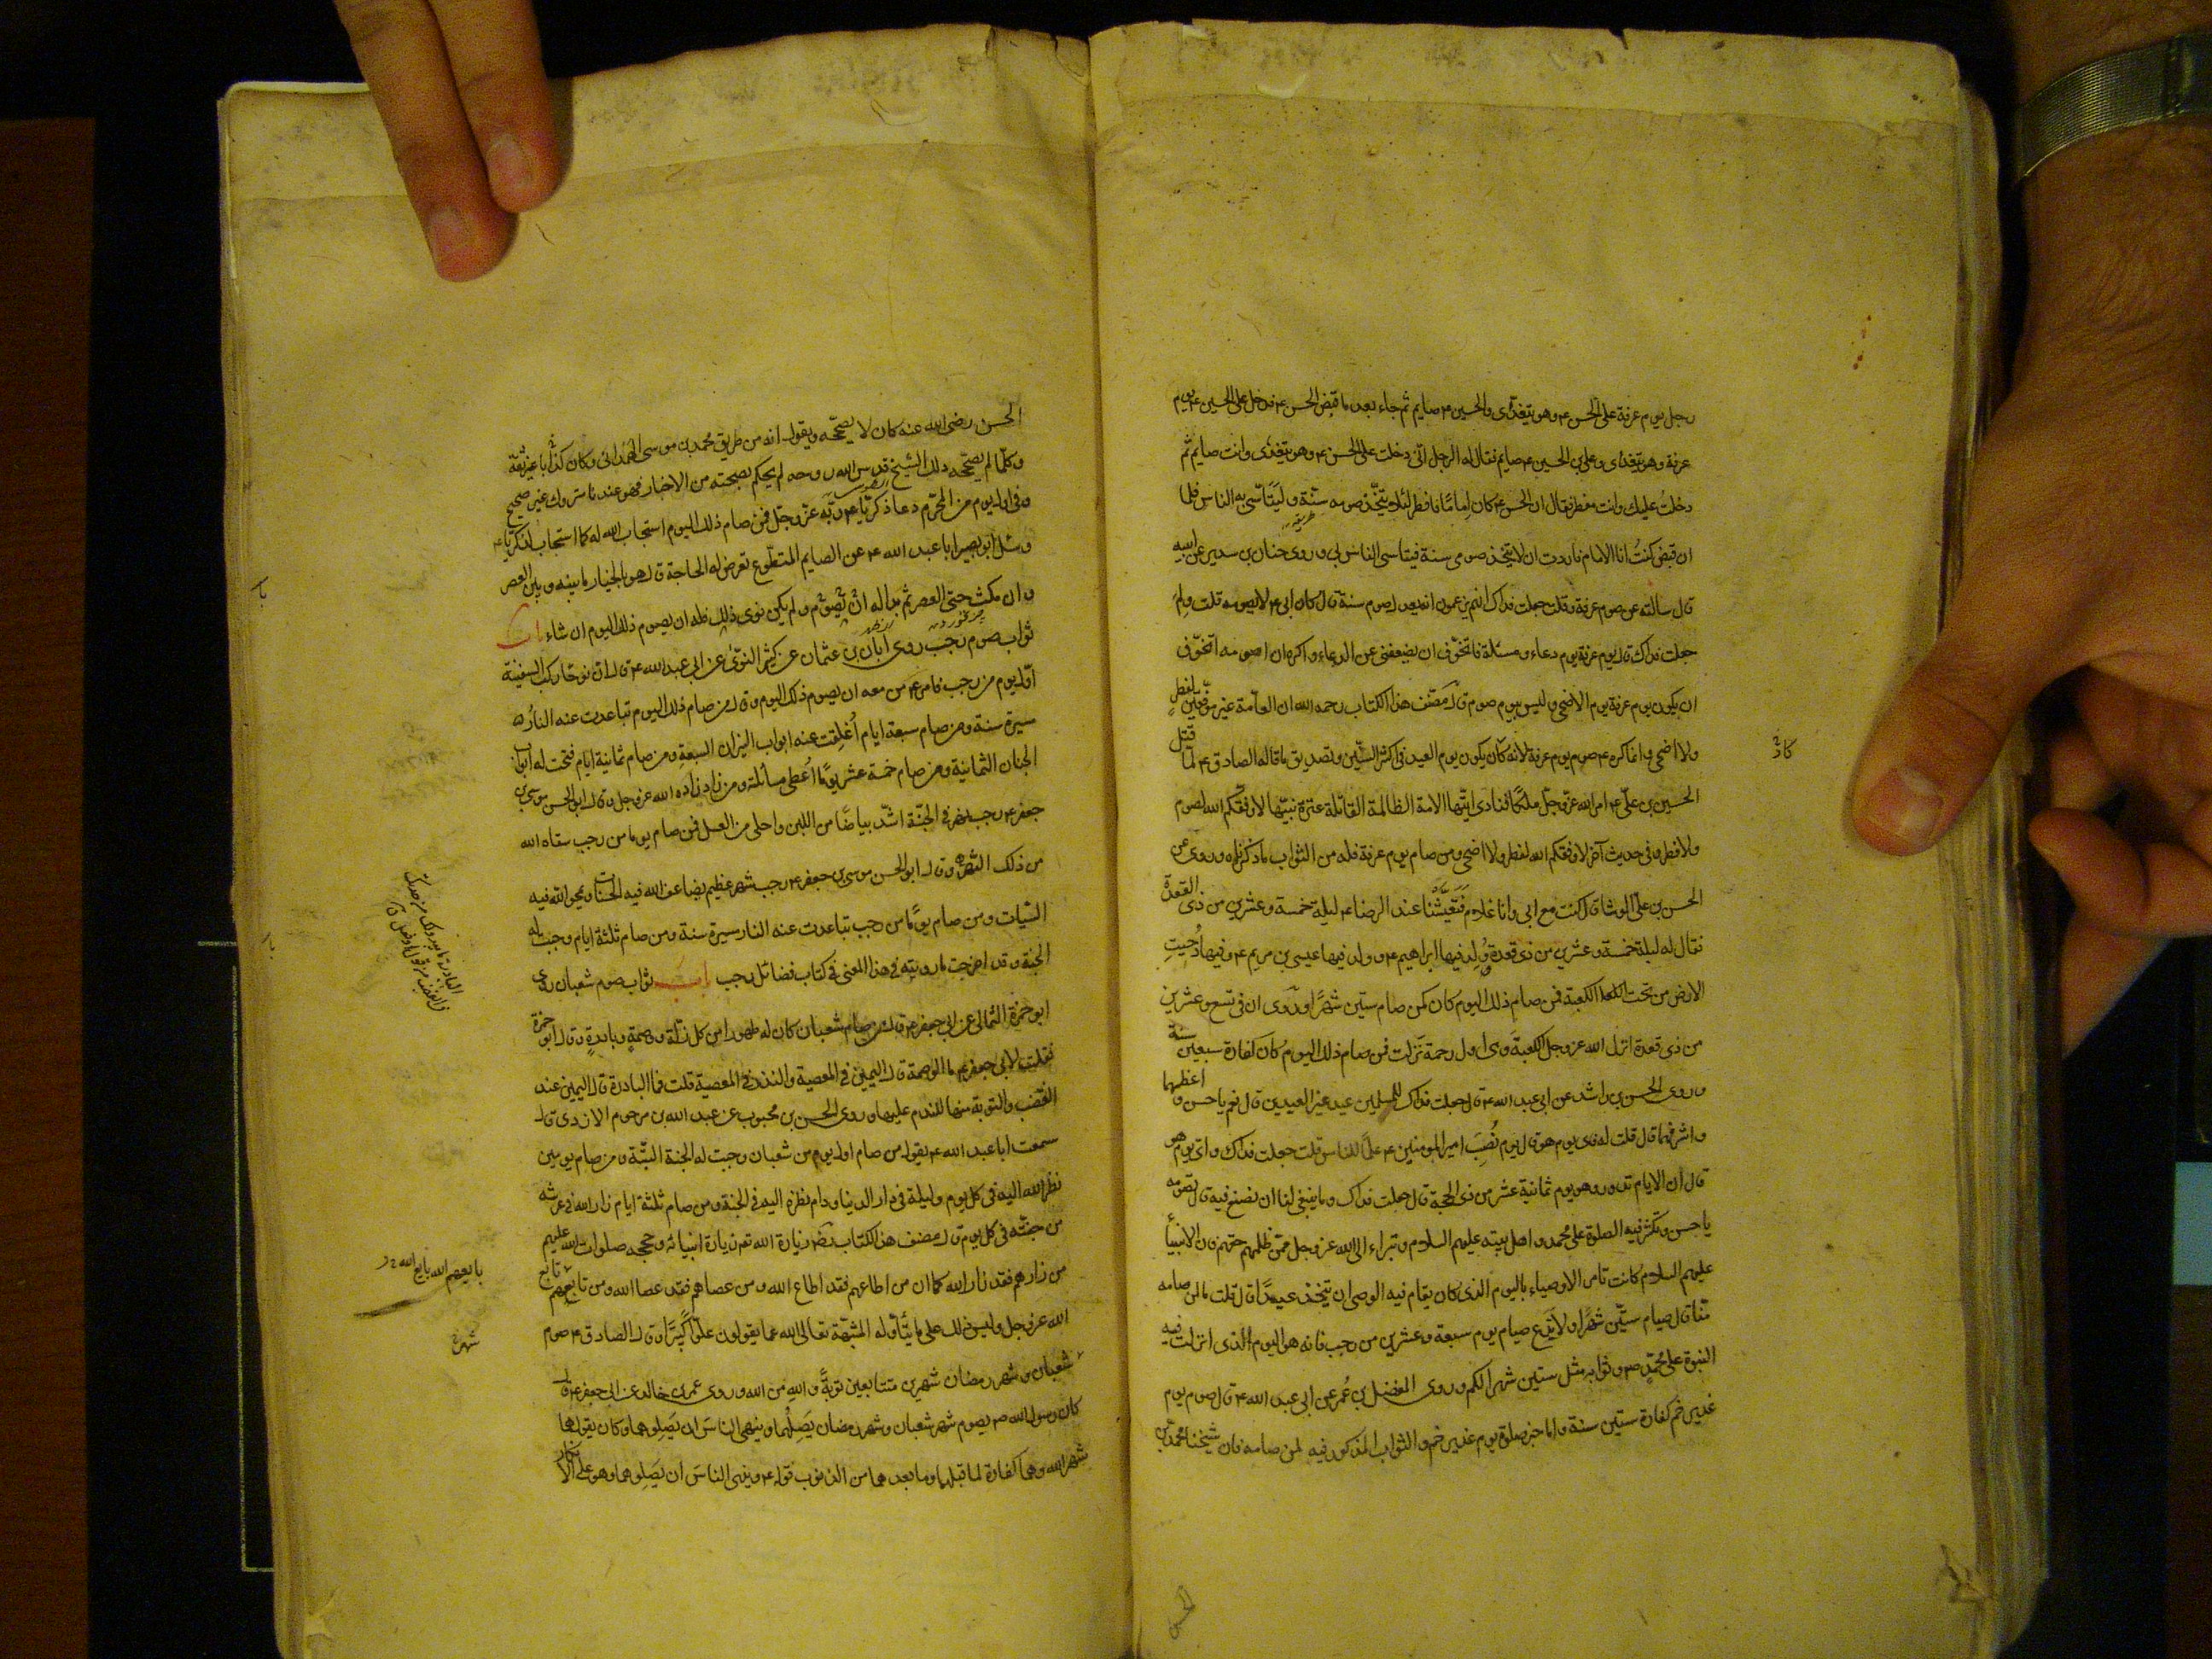 رجل يوم عرفة على الحسن ع وهو يتغدى والحسين ع صايم ثم جاء بعد ما قبض الحسن ع فدخل على الحسين ع يوم
عرفة وهو يتغدى وعلي بن الحسين ع صايم فقال له الرجل اني دخلت على الحسن ع وهو يتغدى وانت صايم ثم
دخلت عليك وانت مفطر فقال ان الحسن ع كان إمامًا فافطر لئلا يتخذ صومه سنة وليتأسى به الناس فلما
ان قبض كنت انا الامام فاردت ان لا يتخذ صومي سنة فيتاسى الناس بي وروى حنان بن سدير عن ابيه
قال سالته عن صوم عرفة وقلت جعلت فداك انهم يزعمون انه يعدل صوم سنة قال كان ابي ع لا يصومه قلت ولم
جعلت فداك قال يوم عرفة يوم دعاء ومسئلة فاتخوف ان يضعفني عن الدعاء واكره ان اصومه اتخوف
ان يكون يوم عرفة يوم الاضحى وليس بيوم صوم قال مصنف هذا الكتاب رحمه الله ان العامة غير موفقين لفطر
ولا اضحى وانما كره ع صوم يوم عرفة لانه كان يكون يوم العيد في اكثر السنين وتصديق ما قاله الصادق ع لما قتل
الحسين بن علي ع امر الله عز وجل ملكًا فنادى ايتها الامة الظالمة القاتلة عترة نبيها لا وفقكم الله لصوم
ولا فطر وفي حديث آخر لا وفقكم الله لفطر ولا اضحى ومن صام يوم عرفة فله من الثواب ما ذكرناه وروى عن
الحسن بن علي الوشا قال كنت مع ابي وانا غلام فتعشينا عند الرضا ع ليلة خمسة وعشرين من ذي القعدة
فقال له ليلة خمسة وعشرين من ذي قعدة ولد فيها ابراهيم ع وولد فيها عيسى بن مريم ع وفيها دحيت
الارض من تحت الكعبة فمن صام ذلك اليوم كان كمن صام ستين شهرًا وروى ان في تسع وعشرين
من ذي قعدة انزل الله عز وجل الكعبة وهي اول رحمة نزلت فمن صام ذلك اليوم كان كفارة سبعين سنة
وروى الحسن بن راشد عن ابي عبد الله ع قال جعلت فداك للمسلمين عيد غير العيدين قال نعم يا حسن و اعظمها
واشرفهما قال قلت له فاي يوم هو قال يوم نُصِبَ امير المومنين ع علمًا للناس قلت جعلت فداك واي يوم هو
قال ان الايام تدور وهو يوم ثمانية عشر من ذي الحجة قال جعلت فداك وما ينبغي لنا ان نصنع فيه قال تصومه
يا حسن وتكثر فيه الصلوة على محمد واهل بيته عليهم السلام وتبراء الى الله عز وجل ممن ظلمهم حقهم فان الانبيأ
عليهم السلام كانت تامر الاوصياء باليوم الذي كان يقام فيه الوصي ان يتخذ عيدًا قال قلت ما لمن صامه
منا قال صيام ستين شهرًا ولا تدع صيام يوم سبعة وعشرين من رجب فانه هو اليوم الذي انزلت فيه
النبوة على محمد ص وثوابه مثل ستين شهرا لكم وروى المفضل بن عمر عن ابي عبد الله ع قال صوم يوم
غدير خم كفارة ستين سنة واما خبر صلوة يوم غدير خم والثواب المذكور فيه لمن صامه فان شيخنا محمد بن
الحسن
الحسن رضي الله عنه كان لا يصححه ويقول انه من طريق محمد بن موسى الهمداني وكان كذابا غير ثقة
وكلما لم يصححه ذلك الشيخ قدس الله روحه لم يحكم بصحته من الاخبار فهو عندنا متروك غير صحيح
وفي اول يوم من المحرم دعا ذكريا ع ربه عز وجل فمن صام ذلك اليوم استجاب الله له كما استجاب لذكريا ع
وسئل ابو بصير ابا عبد الله ع عن الصايم المتطوع تعرض له الحاجة قال هو بالخيار ما بينه وبين العصر
وان مكث حتى العصر ثم بدا له ان يصوم ولم يكن نوى ذلك فله ان يصوم ذلك اليوم ان شاء باب
ثواب صوم رجب روى أبان بن عثمان عن كثير النوى عن ابي عبد الله ع قال ان نوحًا ركب السفينة
اول يوم من رجب فامر ع من معه ان يصوم ذلك اليوم وقال من صام ذلك اليوم تباعدت عنه النار
مسيرة سنة ومن صام سبعة ايام اُغلقت عنه ابواب النيران السبعة ومن صام ثمانية ايام فتحت له ابواب
الجنان الثمانية ومن صام خمسة عشر يومًا اُعطى مسألته ومن زاد زاده الله عز وجل وقال ابو الحسن موسى بن
جعفر ع رجب نهر في الجنة اشد بياضًا من اللبن واحلى من العسل فمن صام يوما من رجب سقاه الله
من ذلك النهر وقال ابو الحسن موسى بن جعفر ع رجب شهر عظيم يضاعف الله فيه الحسنات ويمحو الله فيه
السيات ومن صام يومًا من رجب تباعدت عنه النار مسيرة سنة ومن صام ثلثة ايام وجبت له
الجنة وقد اخرجت ما رويته في هذا المعنى في كتاب فضائل رجب باب ثواب صوم شعبان روى
ابو حمزة الثمالي عن ابي جعفر ع قال من صام شعبان كان له طهورا من كل زلة ووصمة وبادرةٍ وقال ابو حمزة
فقلت لابي جعفر ع ما الوصمة قال اليمين في المعصية والنذر في المعصية قلت فما البادرة قال اليمين عند
الغضب والتوبة منها الندم عليها وروى الحسن بن محبوب عن عبد الله بن مرحوم الازدي قال
سمعت ابا عبد الله ع يقول من صام اول يوم من شعبان وجبت له الجنة البتة ومن صام يومين
نظر الله اليه في كل يوم وليلة في دار الدنيا ودام نظره اليه في الجنة ومن صام ثلثة ايام زار الله في عرشه
من جنته في كل يوم قال مصنف هذا الكتاب زيارة الله زيارة انبيائه وحججه صلوات الله عليهم
من زارهم فقد زار الله كما ان من اطاعهم فقد اطاع الله ومن عصاهم فقد عصا الله ومن تابعهم تابع
الله عز وجل وليس ذلك على ما يتأوله المشبهة تعالى الله عما يقولون علوًّا كبيرًا وقال الصادق ع صوم
شعبان وشهر رمضان شهرين متتابعين توبةً والله من الله وروى عمرو بن خالد عن ابي جعفر ع قال
كان رسول الله ص يصوم شهر شعبان وشهر رمضان يَصِلهُما وينهى الناسَ ان يَصِلوهما وكان يقول هما
شهرا الله وهما كفارة لما قبلهما وما بعدهما من الذنوب قوله ع وينهى الناسَ ان يَصِلوهما وهو على الانكار